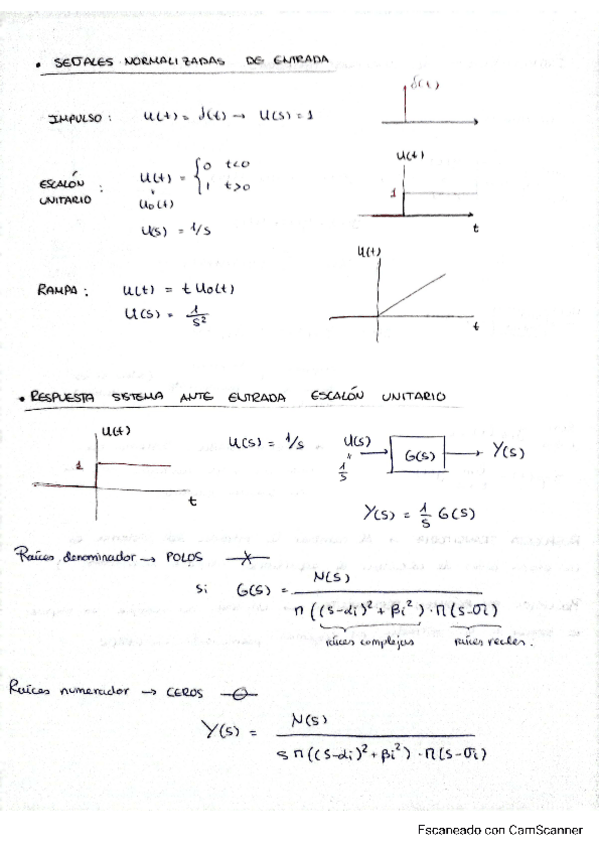 • SEÑALES NORMALIZADAS DE ENTRADA
δ(t)
IMPULSO: U(t) = δ(t) → U(s) = 1
U(t)
ESCALÓN UNITARIO: U(t) = { 0 t<0
1 t>0
1
U₀(t)
U(s) = 1/s
t
U(t)
RAMPA: U(t) = t U₀(t)
U(s) = 1/s²
t
• RESPUESTA SISTEMA ANTE ENTRADA ESCALÓN UNITARIO
U(t)
1
t
U(s) = 1/s
U(s) → G(s) → Y(s)
1/s
Y(s) = 1/s G(s)
Raíces denominador → POLOS —x—
Si G(s) = N(s) / Π((s-αi)² + βi²)·Π(s-σi)
raíces complejas raíces reales.
Raíces numerador → CEROS —o—
Y(s) = N(s) / s Π((s-αi)² + βi²)·Π(s-σi)
Escaneado con CamScanner